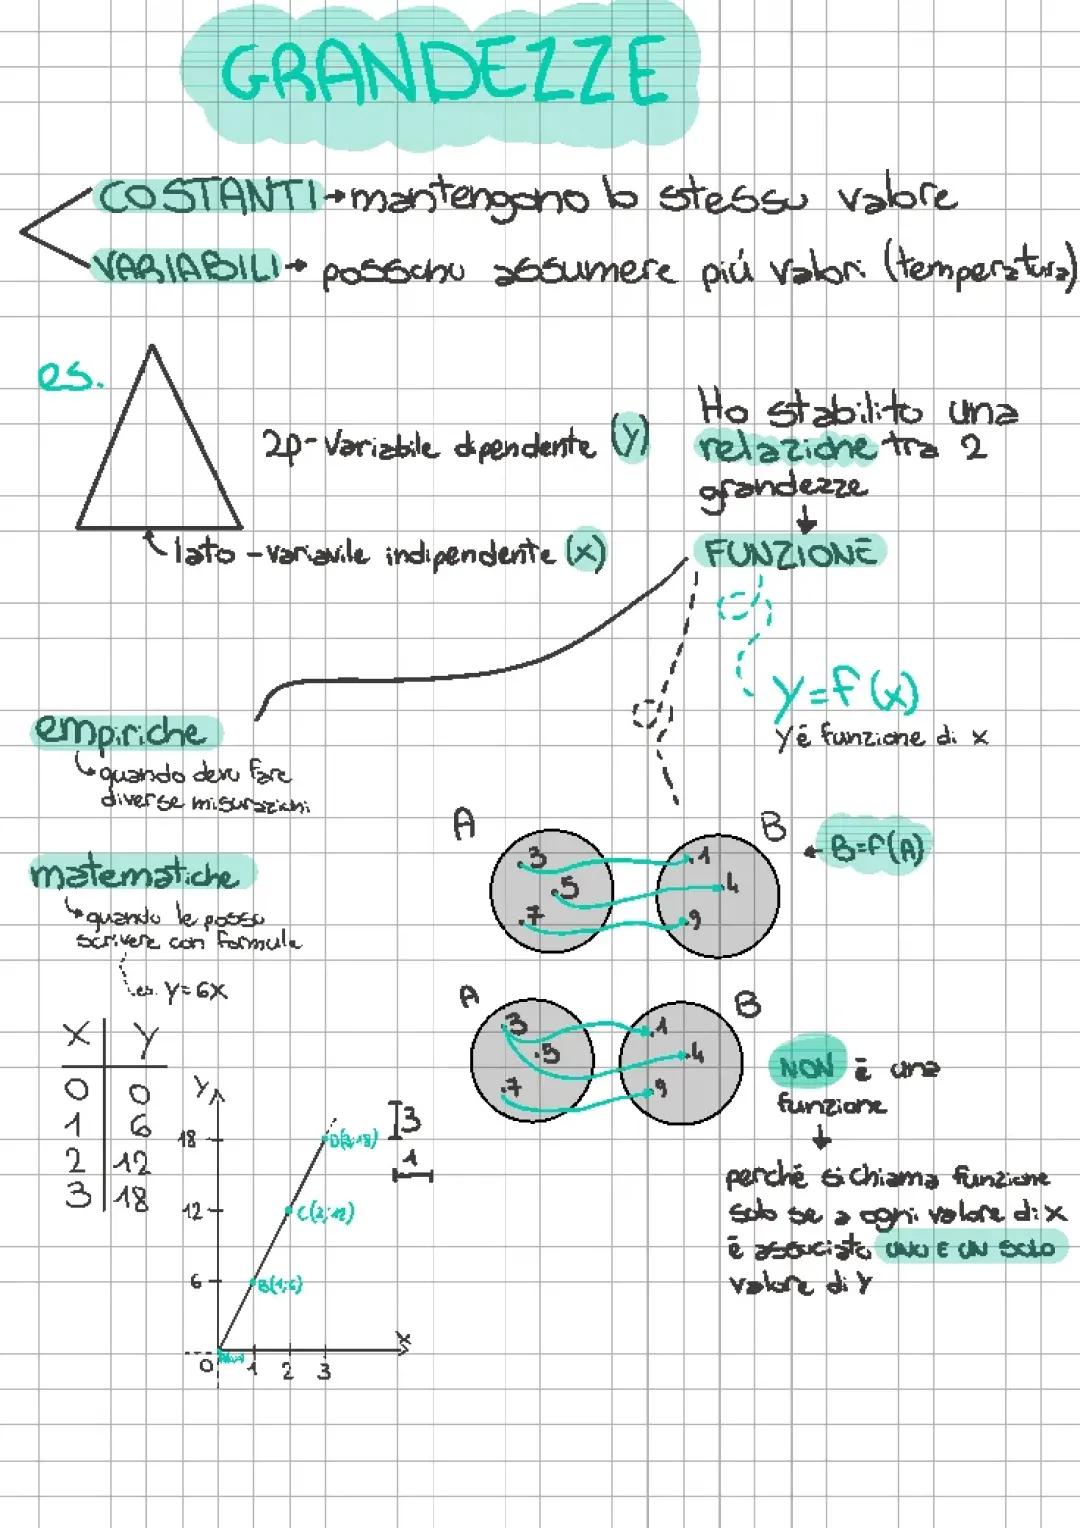 GRANDEZZE
COSTANTI→mantengono lo stesso valore
VARIABILI→ possono assumere più valori (temperatura)
es.
2p-Variabile dipendente (y)
lato -variavile indipendente (x)
Ho stabilito una
relazione tra 2
grandezze
FUNZIONE
y=f(x)
y é funzione di x
empiriche
quando devo fare
diverse misurazioni
matematiche
quando le posso
scrivere con formule
es. y=6x
X Y
0 0
1 6
2 12
3 18
A B
.3 .1
.5 .4
.7 .9
B=f(A)
A B
.3 .1
.5 .4
.7 .9
NON è una
funzione
perché si chiama funzione
solo se a ogni valore di x
è associato UNO E UN SOLO
valore di Y
Y
18 D(3;18)
12 C(2;12)
6 B(1;6)
0 1 2 3
X
3
1